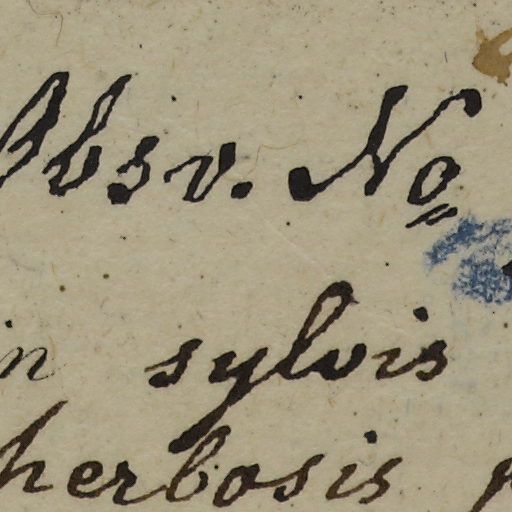 Obsv. No
in sylvis
herbosis